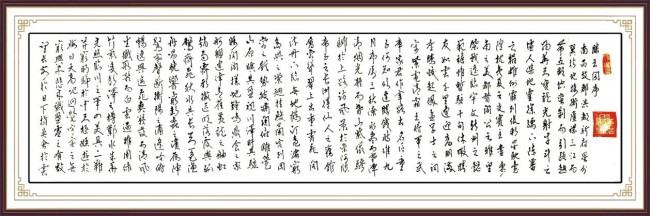 滕王阁序
南昌故郡洪都新府星分
翼轸地接衡庐襟三江而
带五湖控蛮荆而引瓯越
物华天宝龙光射牛斗之
墟人杰地灵徐孺下陈蕃
之榻雄州雾列俊采星驰台
隍枕夷夏之交宾主尽东
南之美都督阎公之雅望
棨戟遥临宇文新州之懿
范襜帷暂驻十旬休假胜
友如云千里逢迎高朋满
座腾蛟起凤孟学士之词
宗紫电清霜王将军之武
库家君作宰路出名区童
子何知躬逢胜饯时维九
月序属三秋潦水尽而寒潭
清烟光凝而暮山紫俨骖
騑于上路访风景于崇阿临
帝子之长洲得仙人之旧馆
层峦耸翠上出重霄飞阁
流丹下临无地鹤汀凫渚穷
岛屿之萦回桂殿兰宫列冈
峦之体势披绣闼俯雕甍
山原旷其盈视川泽纡其骇
瞩闾阎扑地钟鸣鼎食之家
舸舰迷津青雀黄龙之舳虹
销雨霁彩彻区明落霞与孤
鹜齐飞秋水共长天一色渔
舟唱晚响穷彭蠡之滨雁阵
惊寒声断衡阳之浦遥吟俯
畅逸兴遄飞爽籁发而清风
生纤歌凝而白云遏睢园绿
竹气凌彭泽之樽邺水朱华
光照临川之笔四美具二难
并穷睇眄于中天极娱游于
暇日天高地迥觉宇宙之无
穷兴尽悲来识盈虚之有数
望长安于日下指吴会于云